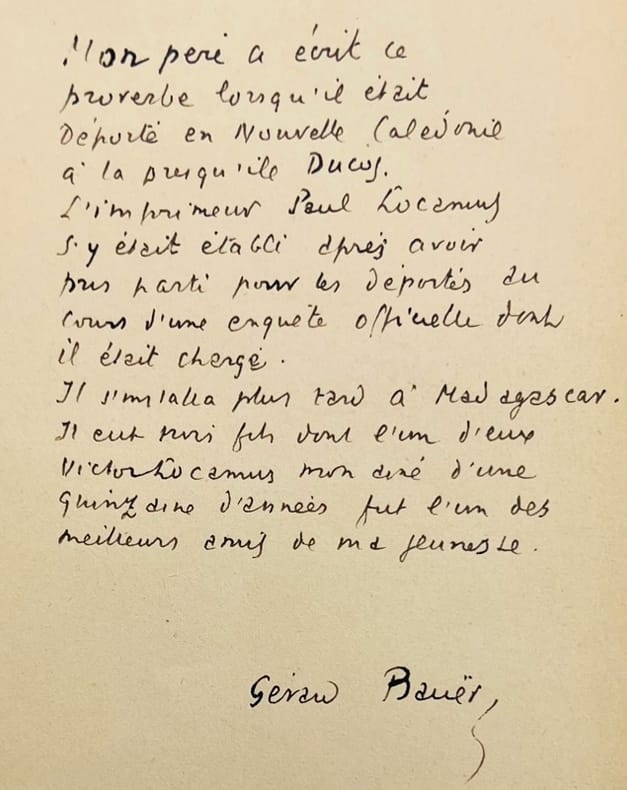 Mon père a écrit ce
proverbe lorsqu'il était
Déporté en Nouvelle Calédonie
à la presqu'ile Ducos.
L'imprimeur Paul Locamus
s'y était établi après avoir
pris parti pour les déportés au
cours d'une enquête officielle dont
il était chargé.
Il s'installa plus tard à Madagascar.
Il eut trois fils dont l'un d'eux
Victor Locamus mon ainé d'une
quinzaine d'années fut l'un des
meilleurs amis de ma jeunesse.
Gérard Bauër